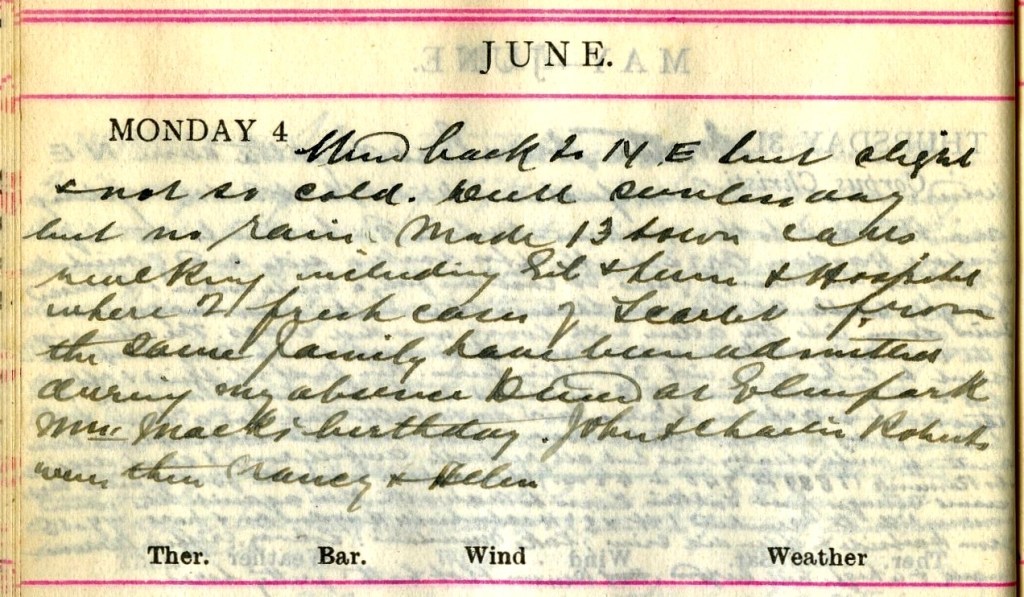 JUNE.
MONDAY 4 Wind back to N E but slight
& not so cold. Dull sunless day
but no rain. Made 13 town calls
walking including & Hospital
where 2 fresh cases of Scarlet from
the same family have been admitted
during my absence Dined at Elmpark
Mrs. Mack's birthday. John & Charlie Roberts
were there Nancy & Helen
Ther. Bar. Wind Weather